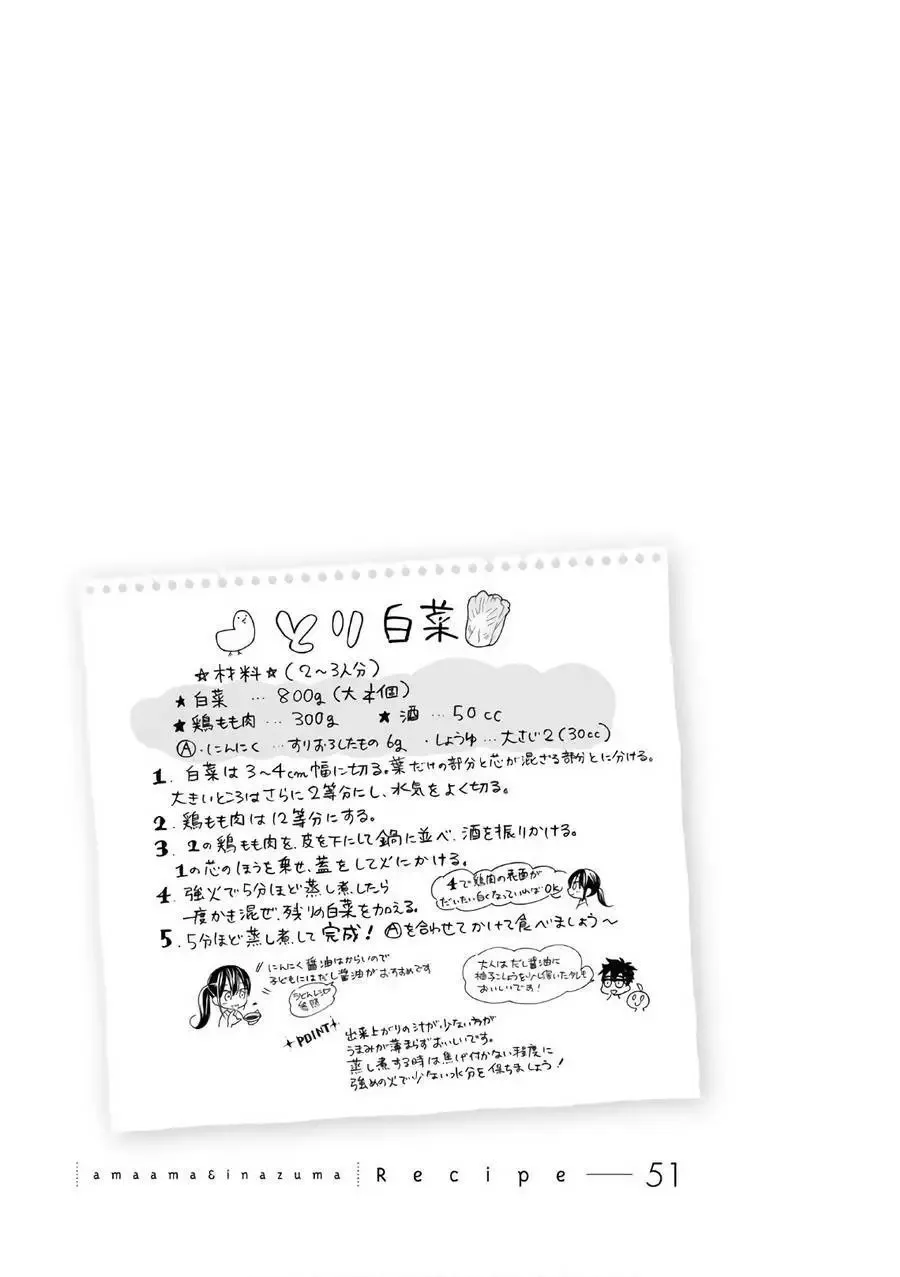 とり白菜
☆材料☆(2〜3人分)
★白菜 … 800g(大1/4個)
★鶏もも肉 … 300g ★酒 … 50cc
Ⓐ・にんにく …すりおろしたもの6g ・しょうゆ…大さじ2(30cc)
1. 白菜は3〜4cm幅に切る。葉だけの部分と芯が混ざる部分とに分ける。
大きいところはさらに2等分にし、水気をよく切る。
2. 鶏もも肉は12等分にする。
3. 2の鶏もも肉を、皮を下にして鍋に並べ、酒を振りかける。
1の芯のほうを乗せ、蓋をして火にかける。
4. 強火で5分ほど蒸し煮したら
一度かき混ぜ、残りの白菜を加える。
4で鶏肉の表面が
だいたい白くなっていればOK
5. 5分ほど蒸し煮して完成! Ⓐを合わせてかけて食べましょう〜
にんにく醤油はからいので
子どもにはだし醤油がおすすめです
うどんレシピ
参照
大人はだし醤油に
柚子こしょうを少し溶いたタレも
おいしいです!
POINT
出来上がりの汁が少ない方が
うまみが薄まらずおいしいです。
蒸し煮する時は焦げ付かない程度に
強めの火で少ない水分を保ちましょう!
amaama&inazuma Recipe 51